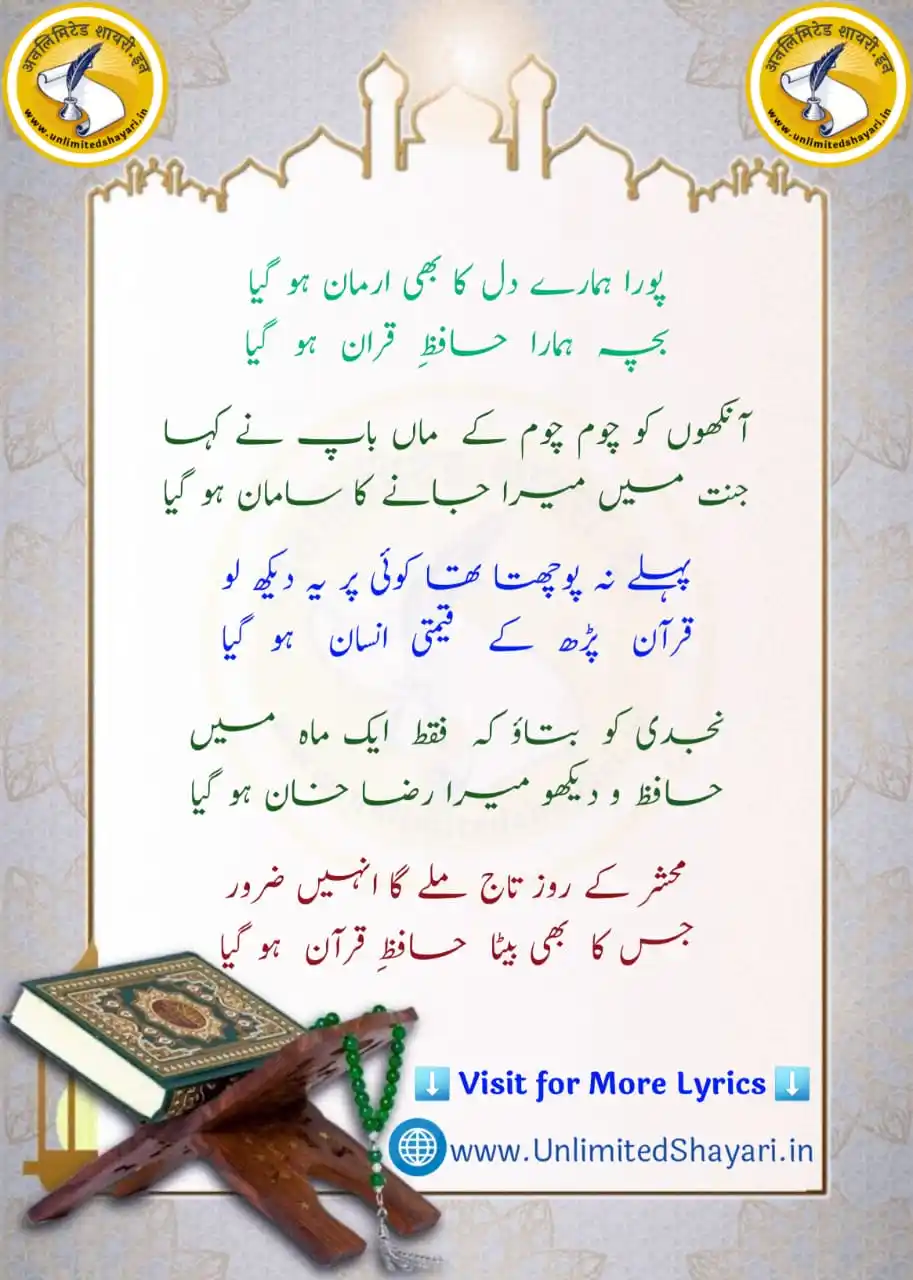 अनलिमिटेड शायरी.इन
www.unlimitedshayari.in
अनलिमिटेड शायरी.इन
www.unlimitedshayari.in
پورا ہمارے دل کا بھی ارمان ہو گیا
بچہ ہمارا حافظِ قران ہو گیا
آنکھوں کو چوم چوم کے ماں باپ نے کہا
جنت میں میرا جانے کا سامان ہو گیا
پہلے نہ پوچھتا تھا کوئی پر یہ دیکھ لو
قرآن پڑھ کے قیمتی انسان ہو گیا
نجدی کو بتاؤ کہ فقط ایک ماہ میں
حافظ و دیکھو میرا رضا خان ہو گیا
محشر کے روز تاج ملے گا انہیں ضرور
جس کا بھی بیٹا حافظِ قرآن ہو گیا
⬇️ Visit for More Lyrics ⬇️
www.UnlimitedShayari.in